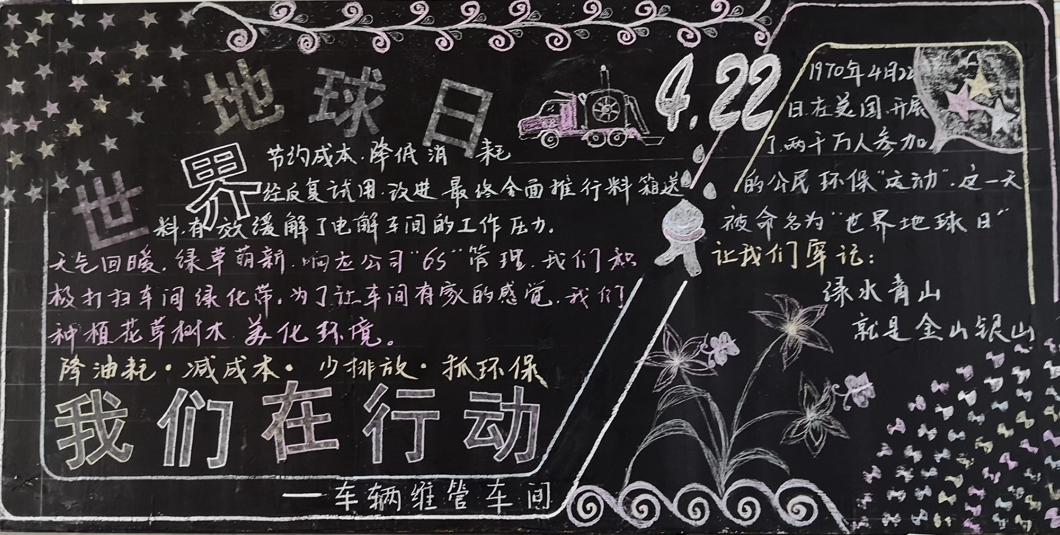 世界地球日
4.22
节约成本.降低消耗
经反复试用.改进最终全面推行料箱送
料.有效缓解了电解车间的工作压力.
天气回暖.绿草萌新.响应公司"6S"管理.我们积
极打扫车间绿化带.为了让车间有家的感觉.我们
种植花草树木.美化环境。
降油耗·减成本·少排放·抓环保
我们在行动
——车辆维管车间
1970年4月22
日.在美国.开展
了.两千万人参加
的公民环保"运动".这一天
被命名为"世界地球日"
让我们牢记：
绿水青山
就是金山银山